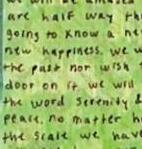 we will be amazed
are half way th
going to know a ne
new happiness. we w
the past nor wish t
door on it we will
the word serenity &
peace, no matter h
the scale we hav